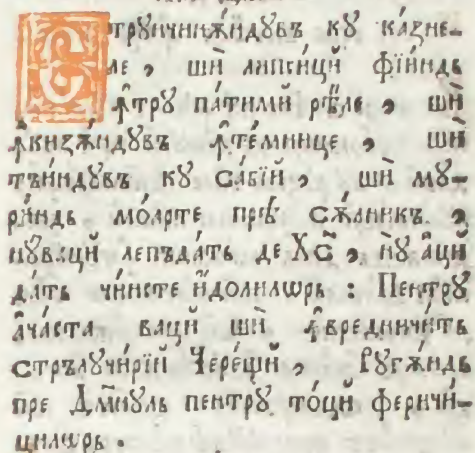 Стру́ничинжи́ндувъ кꙋ ка́зне-
ле , шѝ липси́цй фїи́нда
ꙟ҆трꙋ па́тимй рѣ́ле , шѝ
ꙟ҆кизѫ́ндувъ ꙟ҆те́мнице , шѝ
тъи́ндꙋвъ кꙋ са́бїй , шѝ мꙋ-
ри́ндь мо́арте пре́ сѫ́нникъ ,
нꙋвацй лепъда́ть де Хс҃ , нꙋ а҆цй
да́ть чи́нсте и҆́долилѡръ : Пентрꙋ
а҆ча́ста вацй шѝ ꙟ҆вредничи́ть
стрълꙋчи́рїй Чере́щй , Рꙋгѫ́ндь
пре Дм҃нꙋль пентрꙋ то́цй феричи́-
цилѡръ .